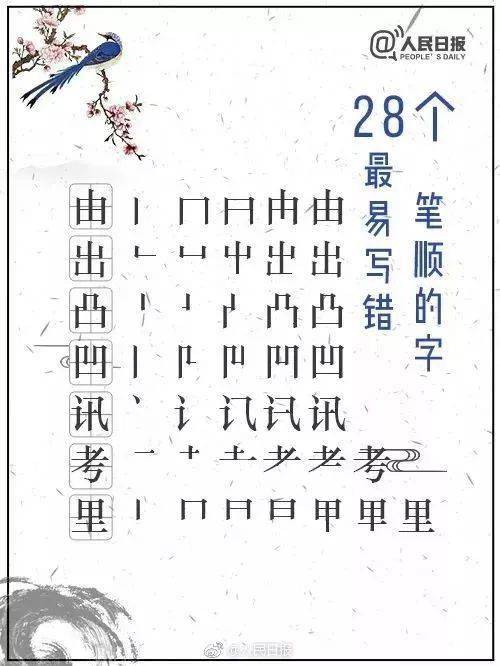 @人民日报
PEOPLE'S DAILY
28个
最易写错
笔顺的字
由 丨 冂 日 由 由
出 乚 凵 屮 出 出
凸 丨 凸 凸
凹 丨 凹 凹
讯 丶 讠 讯
考 一 十 土 耂 耂 考
里 丨 冂 日 日 甲 甲 里
@人民日报